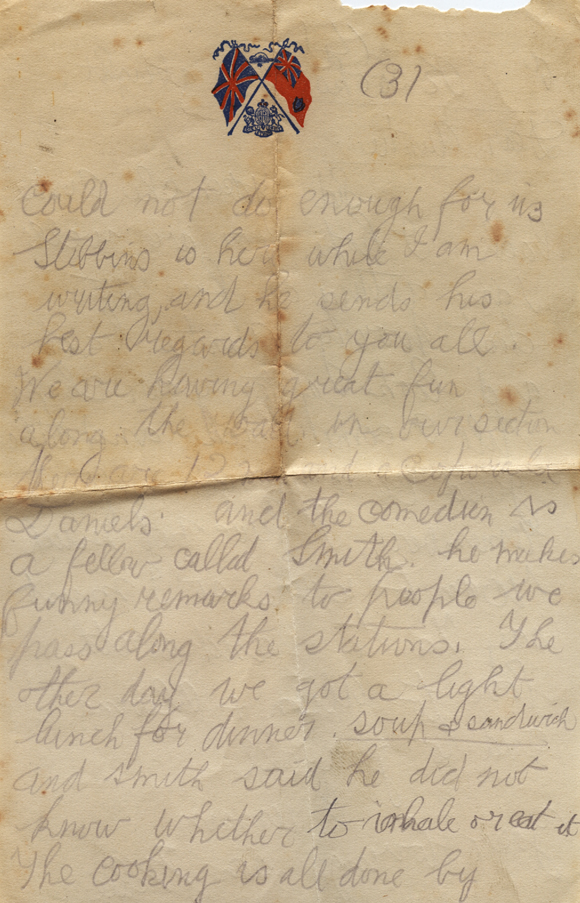 (3)
Could not do enough for us
Stibbins is here while I am
writing, and he sends his
best regards to you all.
We are having great fun
along the road in our section
there are 12 men and a Corporal
Daniels. and the comedien is
a fellow called Smith. he makes
funny remarks. to people we
pass along the stations. The
other day we got a light
lunch for dinner. soup & sandwich
and Smith said he did not
know whether to inhale or eat it
The cooking is all done by